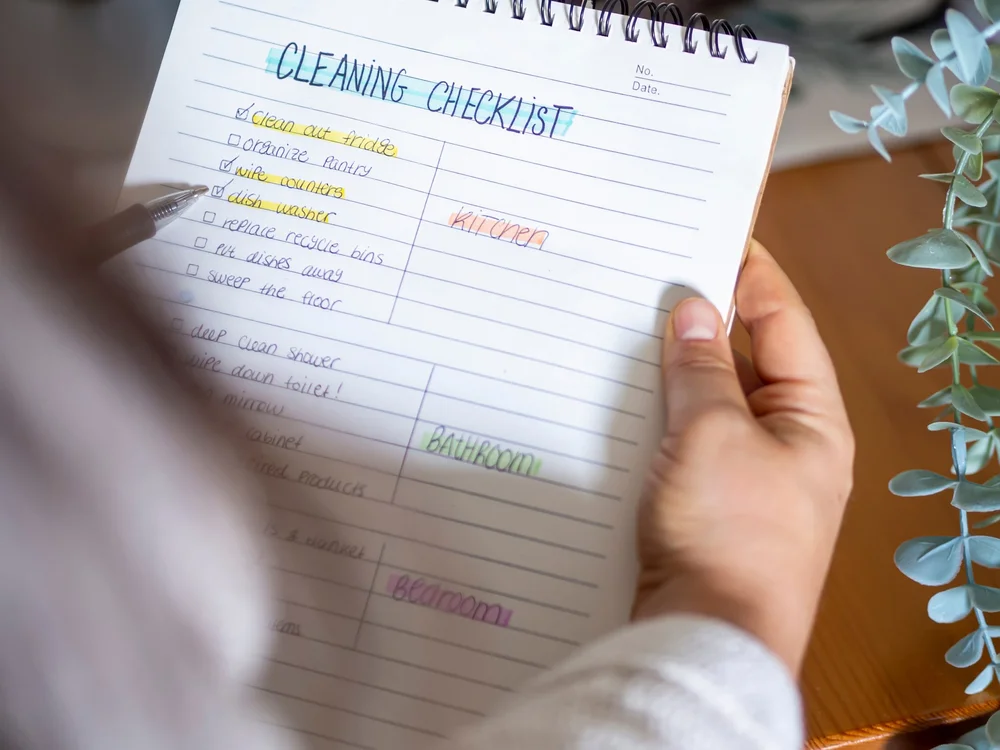 No.
Date.
CLEANING CHECKLIST
clean out fridge
organize pantry
wipe counters
dish washer
replace recycle bins
put dishes away
sweep the floor
kitchen
deep clean shower
wipe down toilet!
mirrow
cabinet
products
BATHROOM
blanket
Bedroom